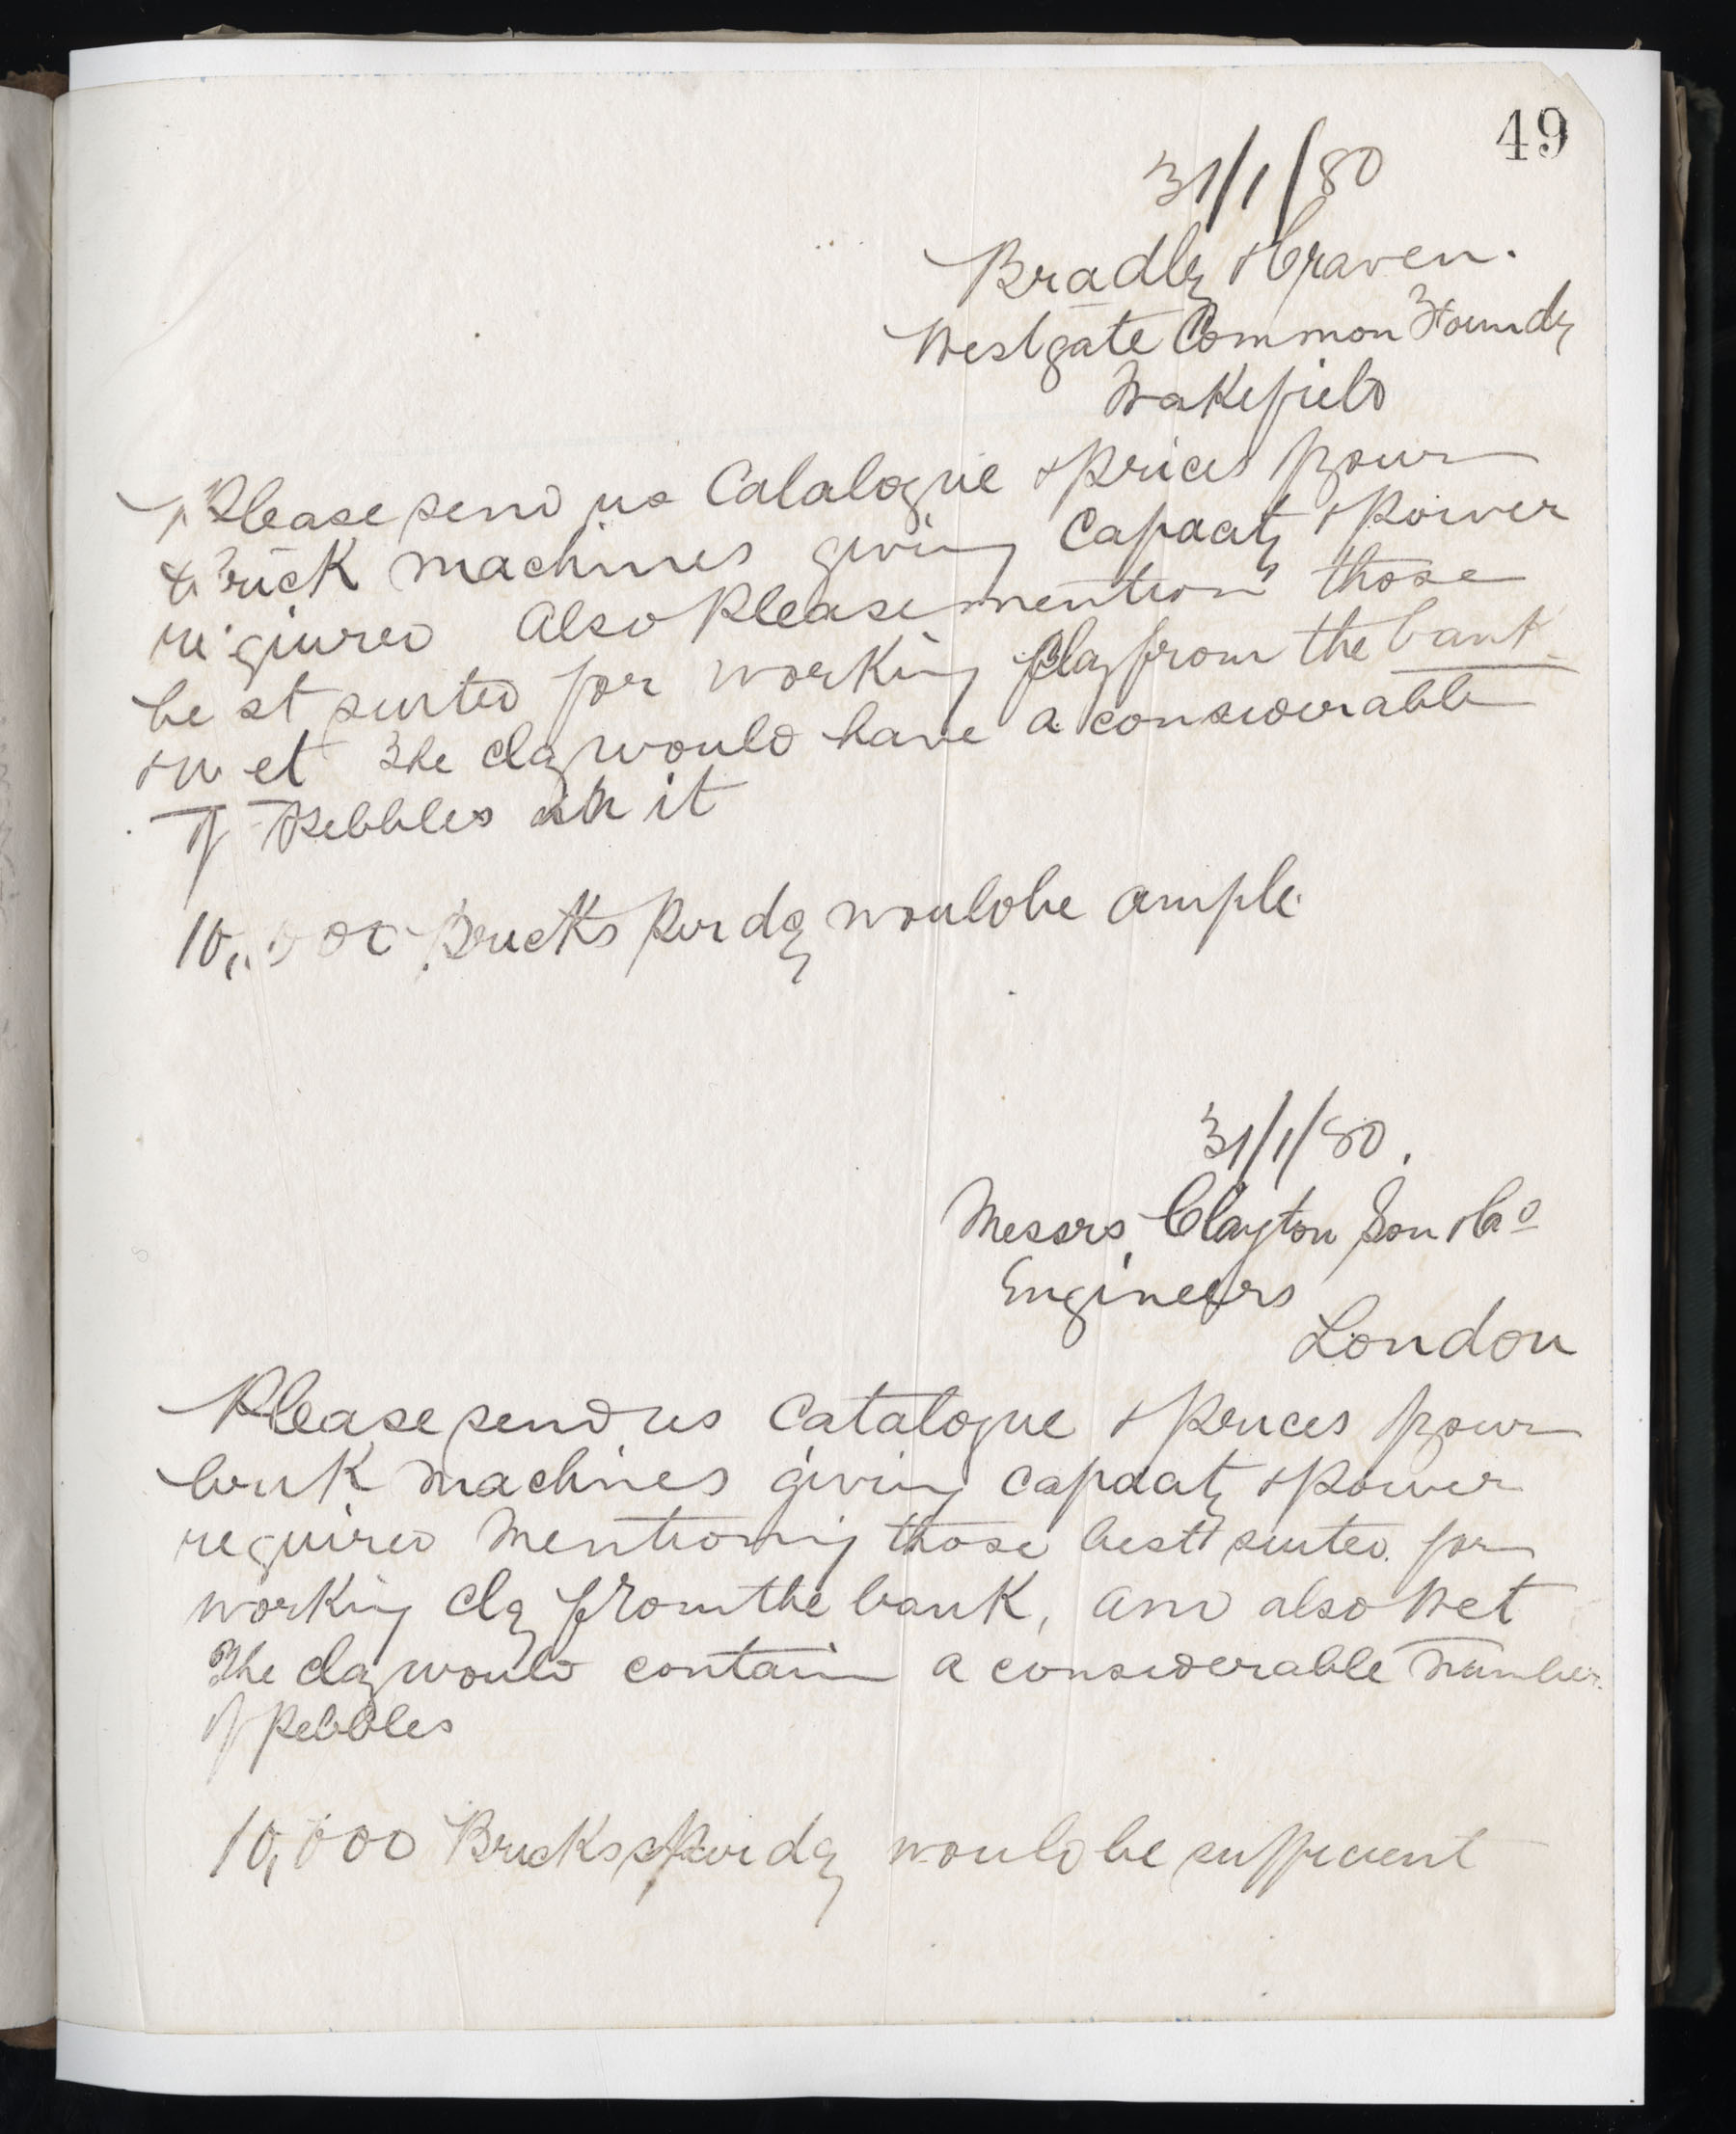 49
31/1/80
Bradley & Craven.
Westgate Common Foundy
Wakefield
Please send us Catalogue & prices of your
Brick machines giving Capacity & Power
required Also Please mention those
best suited for working Clay from the bank
& wet The clay would have a considerable
of Pebbles in it
10,000 Bricks Per day would be ample.
31/1/80.
Messrs Clayton Son & Co
Engineers
London
Please send us Catalogue & Prices of your
brick machines giving capacity & Power
required Mentioning those best suited for
working clay from the bank, and also Wet
The clay would contain a considerable number
of Pebbles
10,000 Bricks Per day would be sufficient